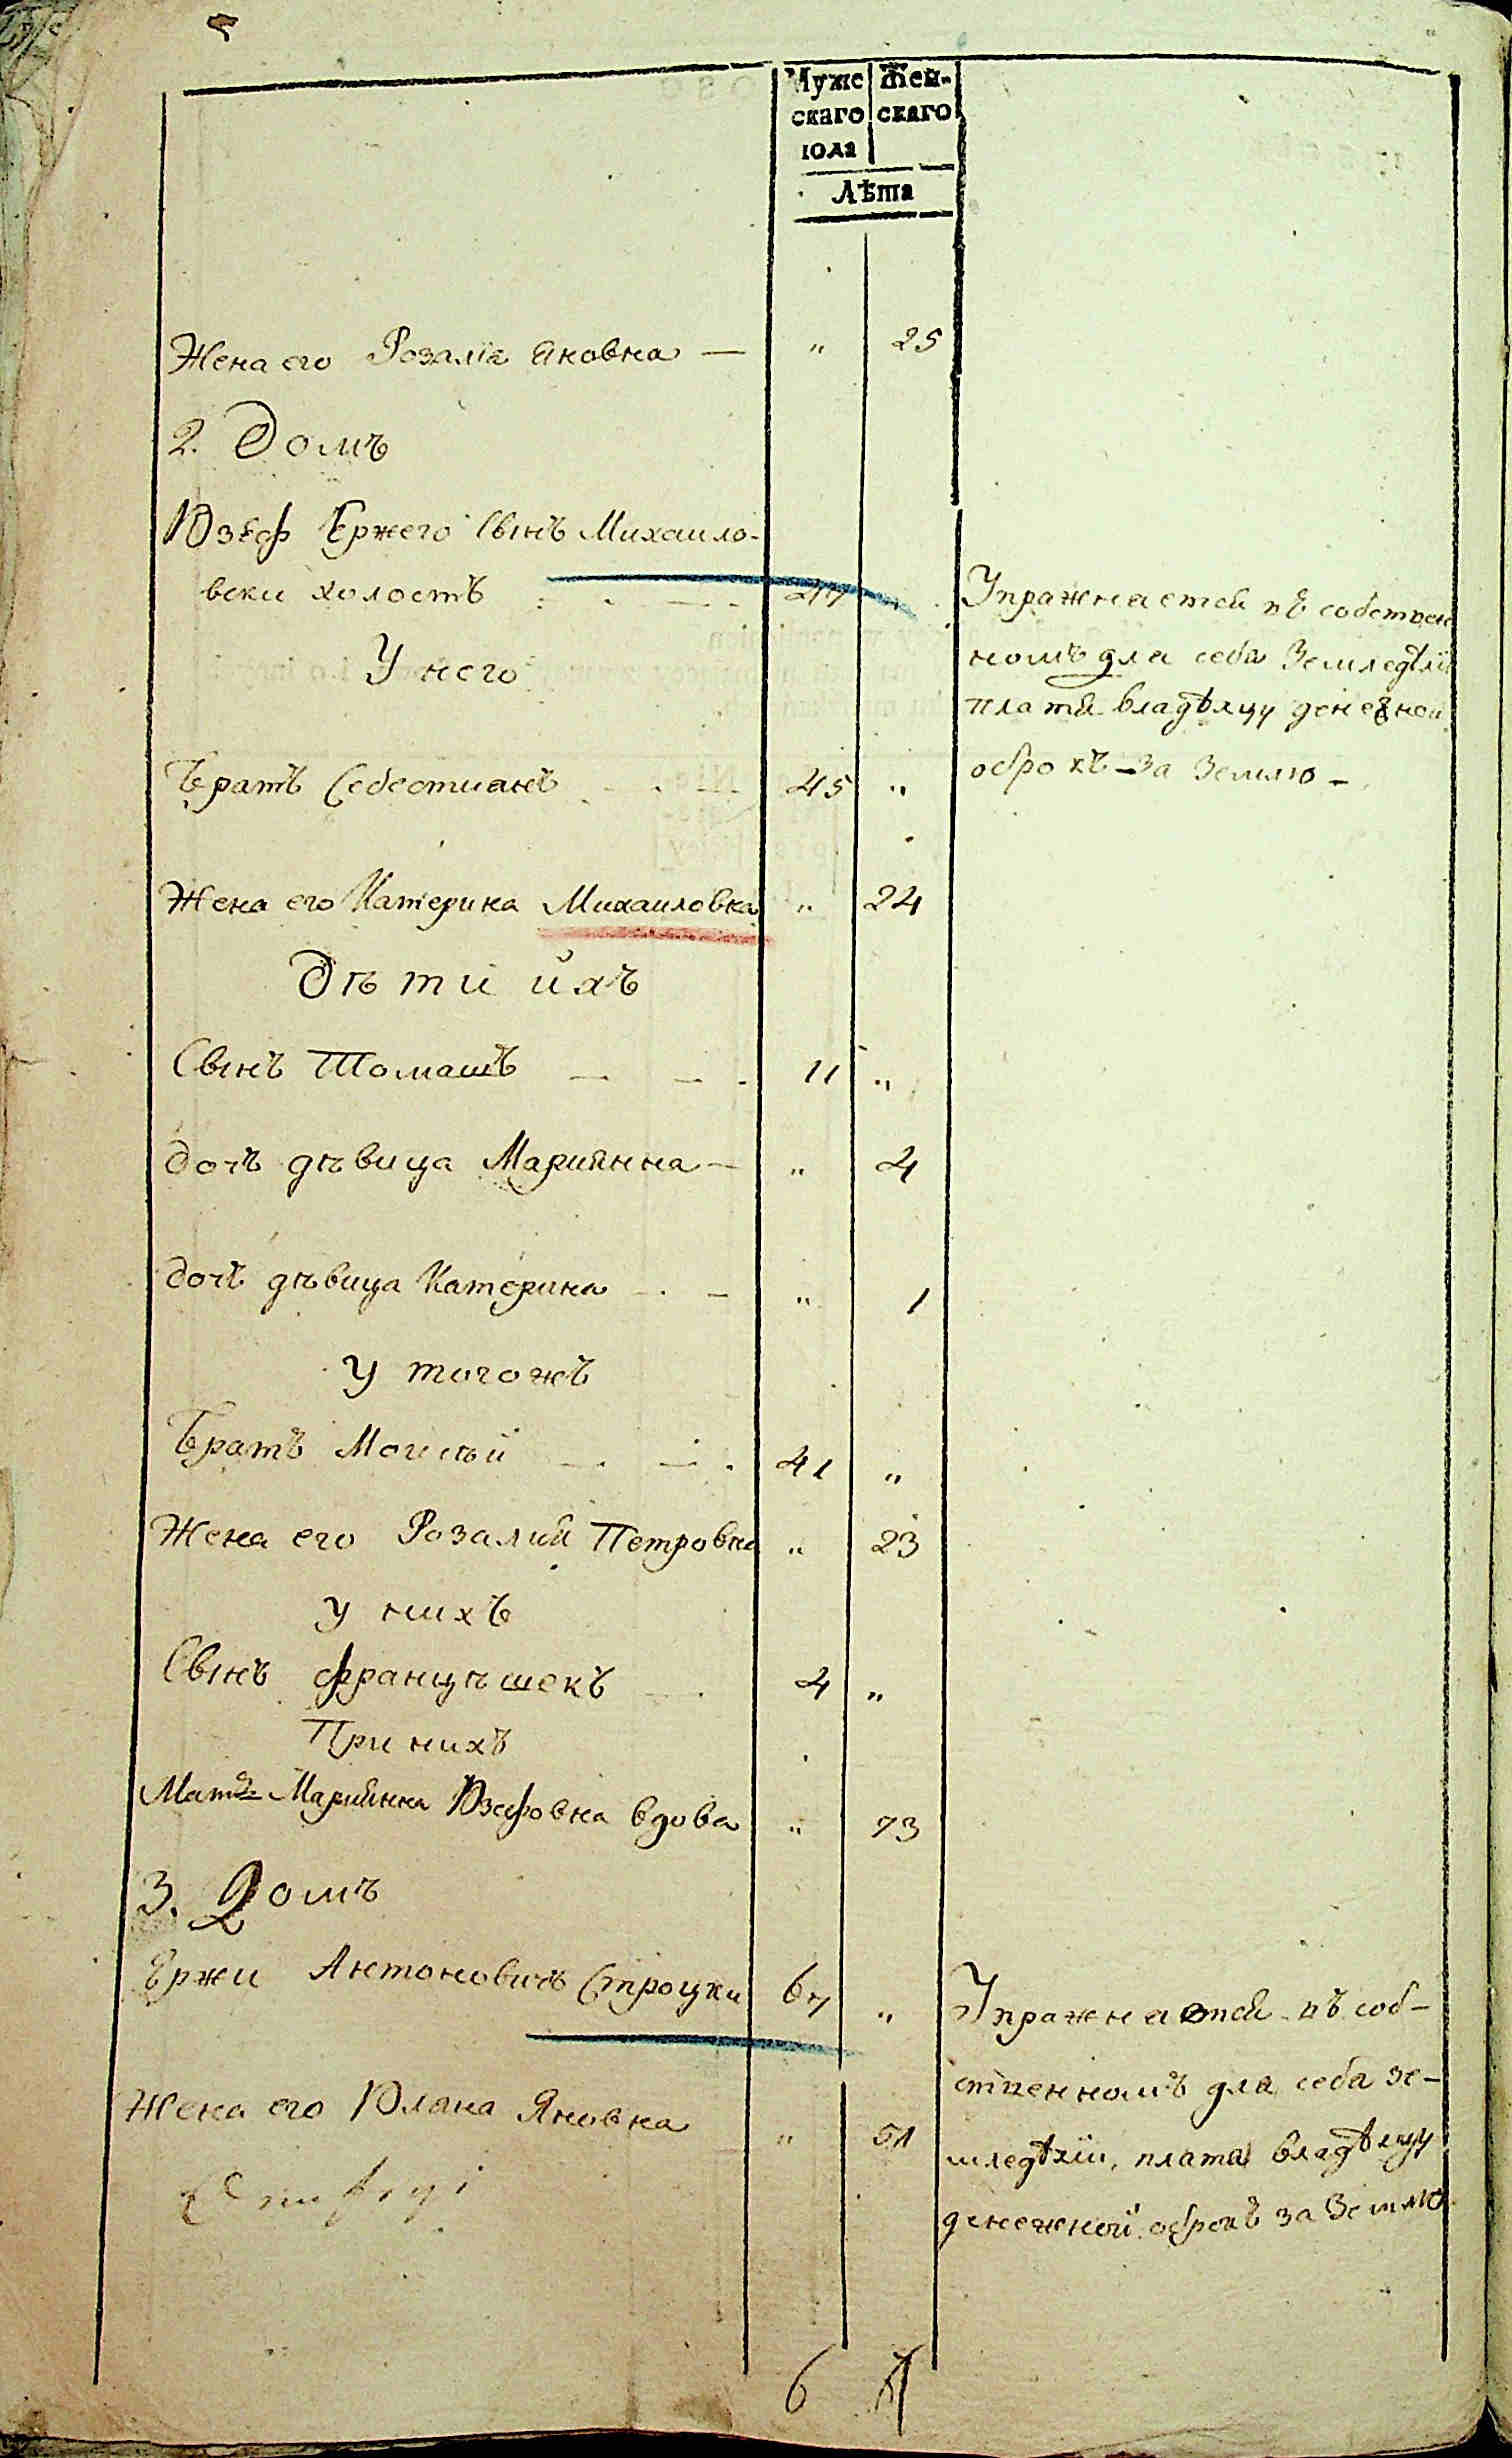 Муже Жен-
скаго скаго
пола
Лѣта
Жена его Розалїя Яновна — " 25
2. Домъ
Юзеф Ержего Сынъ Михаило-
вски холостъ 47 "
У него
Братъ Себестианъ 45 "
Жена его Катерина Михаиловна " 24
Дѣти ихъ
Сынъ Томашъ — — 11 "
дочь дѣвица Марийнна — " 4
дочь дѣвица Катерина — " 1
У тогожъ
Братъ 41 "
Жена его Розалия Петровна " 23
У нихъ
Сынъ Францѣшекъ 4 "
При нихъ
Мать Марийнна Юзефовна вдова " 73
3. Домъ
Ержи Антоновичъ Строцки 67 "
Жена его Юлана Яновна " 51
6
Упражнается въ собствен
номъ для себя Земледѣлїи
платя владѣлцу денежной
оброкъ за Землю —
Упражнается въ соб-
ственномъ для себя зе-
мледѣлїи, платя владѣлцу
денежной оброкъ за Землю